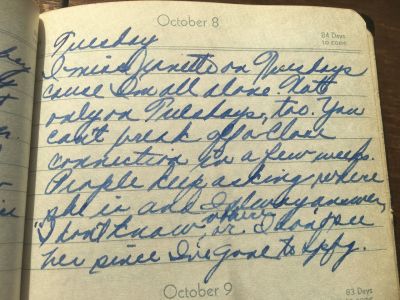 October 8
84 Days
to come
Tuesday
I miss on Tuesdays
cause I'm all alone. Not
only on Tuesdays, too. You
can't break off a close
connection in a few weeks.
People keep asking, where
she is and I always answer,
"I don't know" or I don't see
her since I've gone to
October 9
83 Days